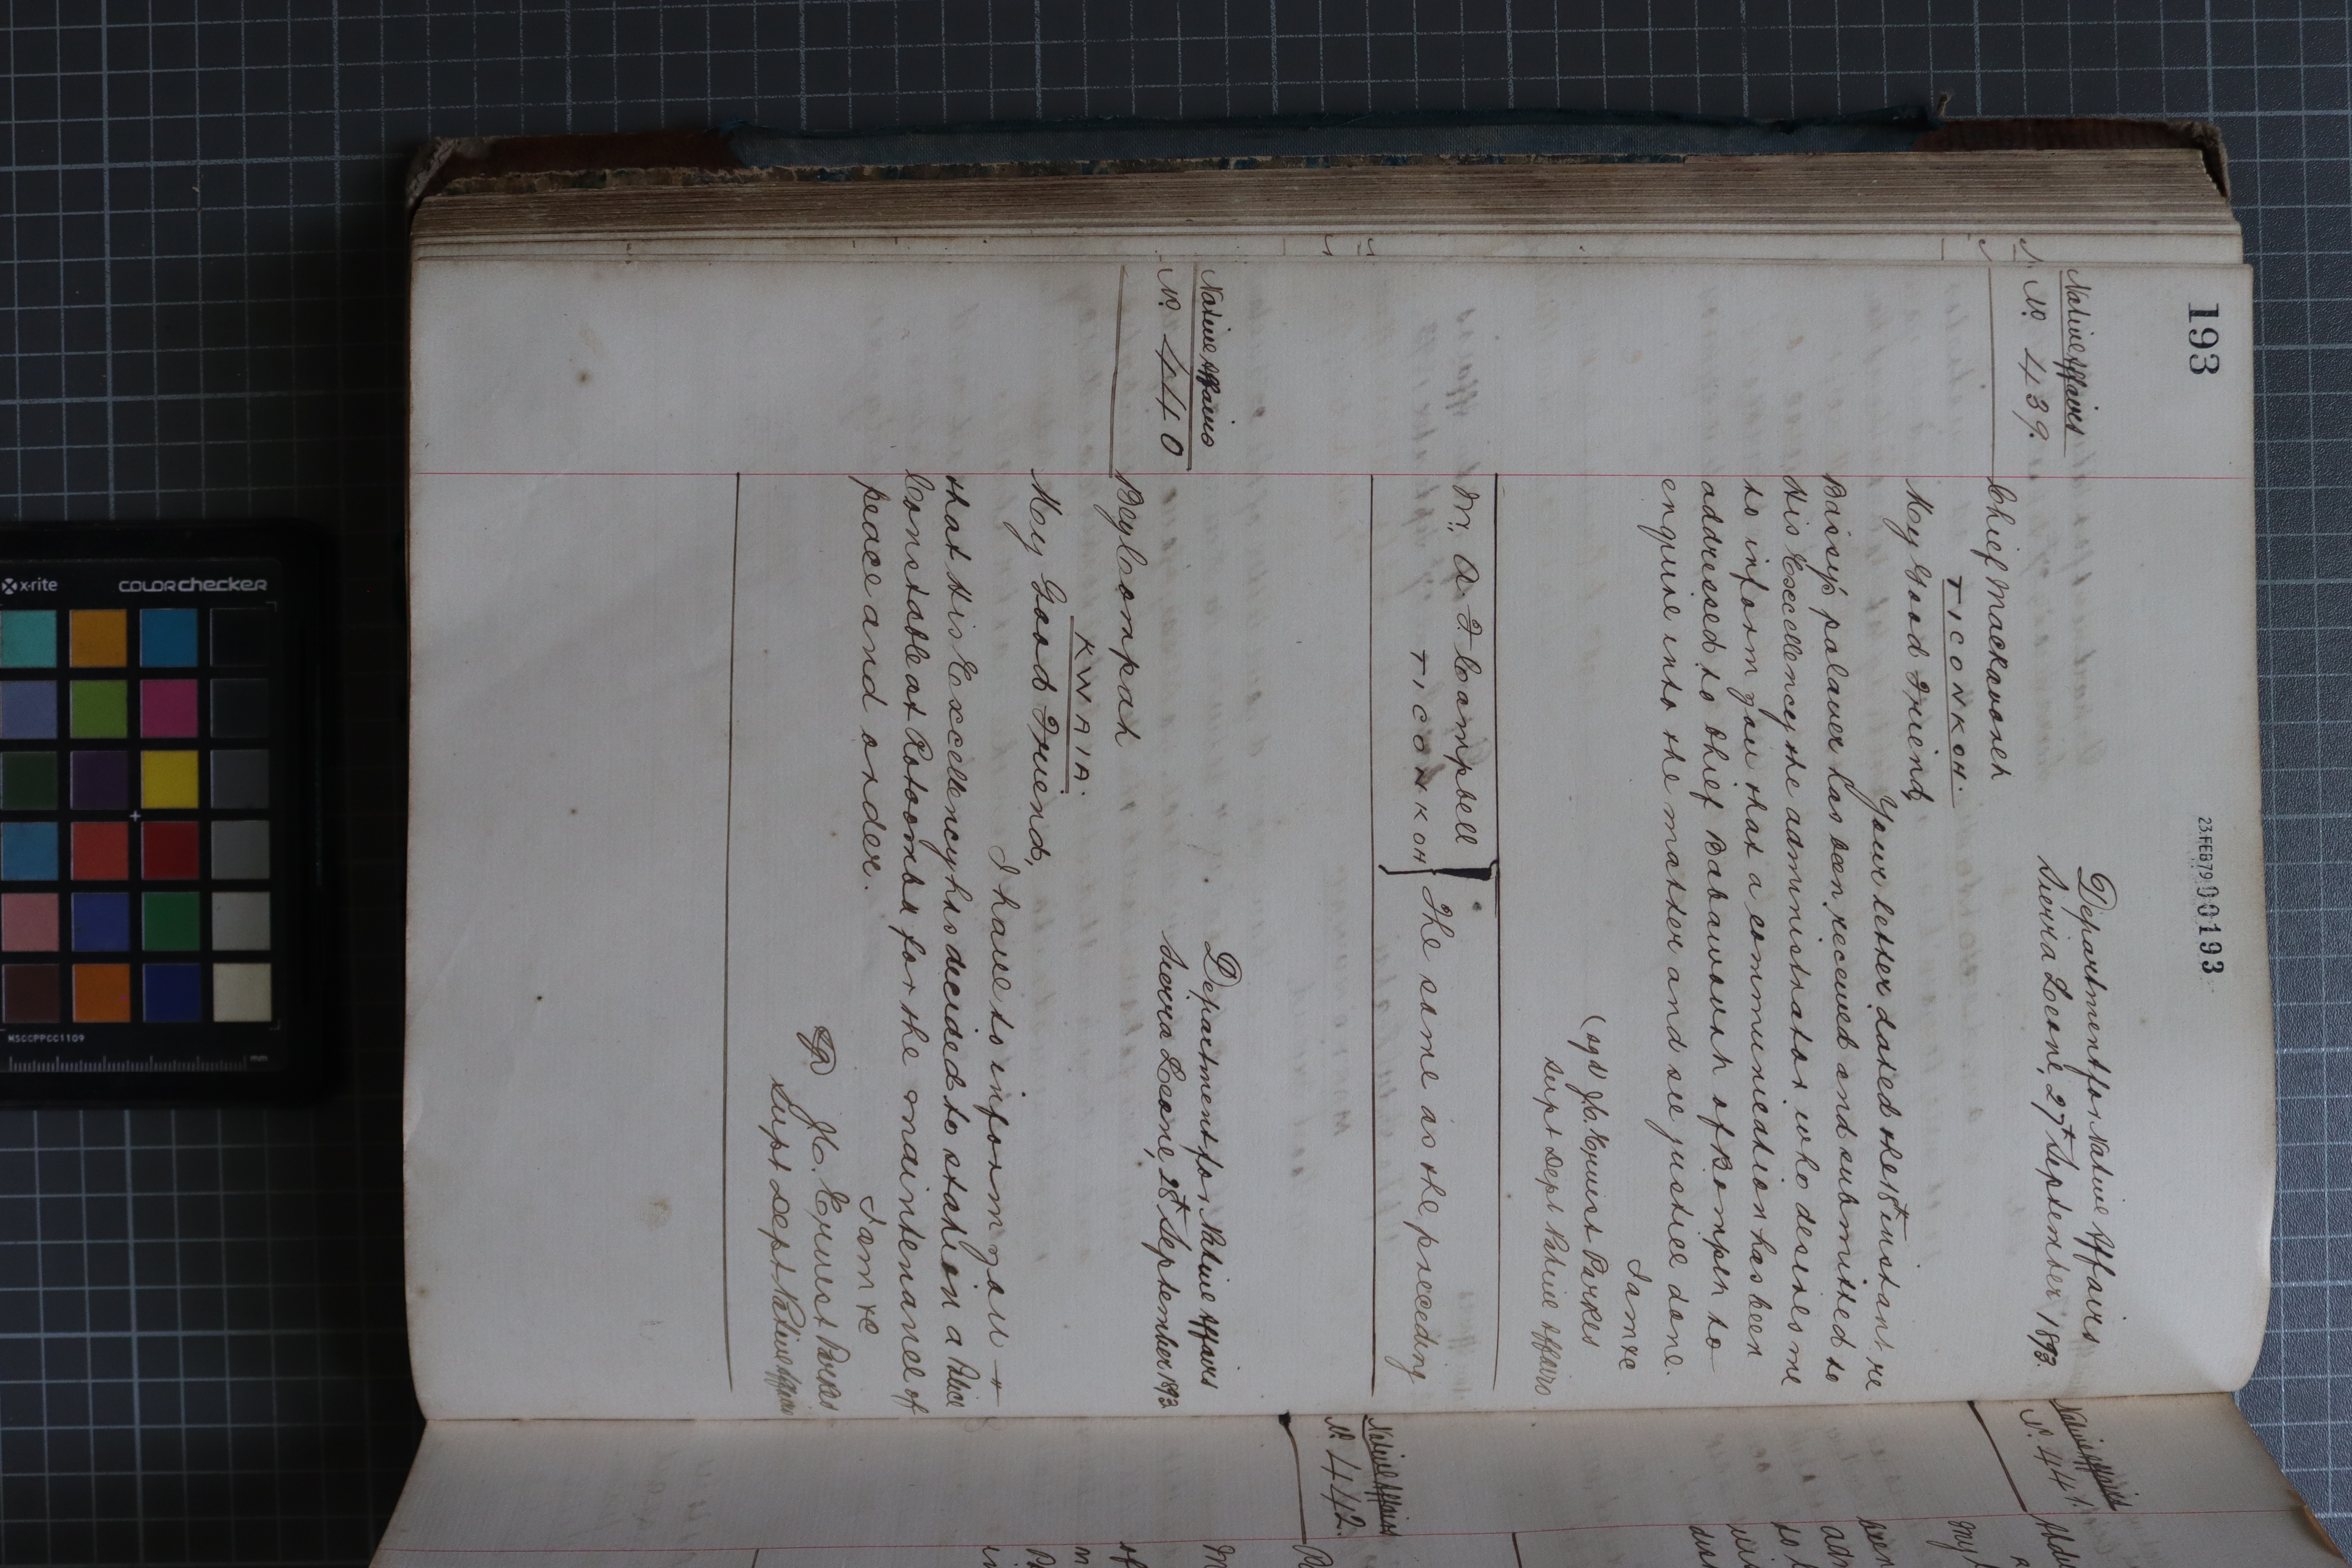 193
23 FEB 79 00193
Native Affairs
No. 439.
Department for Native Affairs
Sierra Leone, 27th September 1893.
Chief Mackavoreh
TICONKOH.
My Good Friend,
Your letter dated the 18th instant re
Bassy's palaver has been received and submitted to
His Excellency the administrator who desires me
to inform you that a communication has been
addressed to Chief Babawourh of Bompeh to
enquire into the matter and see justice done.
I am &c
(sgd) J.C. Ernest Parkes
Supt Dept Native Affairs
Mr. A. F. Campbell
TICONKOH
} The same as the preceding
Native Affairs
No. 440
Department for Native Affairs
Sierra Leone, 28th September 1893
Bey Compah
KWAIA.
My Good Friend,
I have to inform you
that His Excellency has decided to station a Police
Constable at Rotoombu for the maintenance of
peace and order.
I am &c
J.C. Ernest Parkes
Supt Dept Native Affairs
Native Affairs
No. 441.
My
Native Affairs
No. 442.